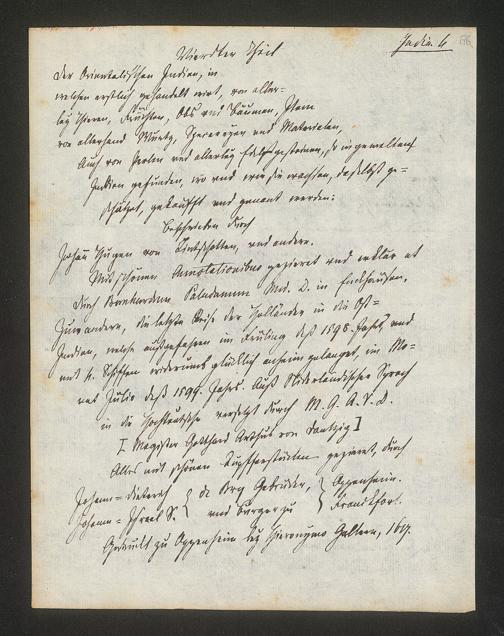 India. 6 66
Vierdter Theil
Der Orientalischen Indien, in
welchen erstlich gehandelt wirt, von aller-
ley Thieren, Früchten, Obs und Bäumen, Item
von allerhand Wurtz, Specereyen und Materialen,
Auch von Perlen und allerley Edelgesteinen, so in gemeltem
Indien gefunden, wo und wie sie wachsen, daselbst ge-
schätzt, gekaufft und genant werden:
Beschrieben durch
Johan Hugen von Lintschotten, und andere.
Mit schönen Annotationibus gezieret und erklär et
durch Bernhardum Paludanum Med. D. in Enckhausen.
Zum andern, die letzte Reise der Holländer in die Ost-
Indien, welche außgefahren im Früling deß 1598. Jahrs, und
mit 4. Schiffen widerumb glücklich anheim gelanget, im Mo-
nat Julio deß 1599. Jahrs. Auß Niderländischer Sprach
in die Hochteutsche versetzt durch M. G. A. V. D.
[Magister Gotthard Arthus von Dantzig]
Alles mit schönen Kupfferstücken gezieret, durch
Johann-Dieterich } de Bry Gebrüder, } Oppenheim.
Johann-Israel S. } und Burger zu } Franckfort.
Getruckt zu Oppenheim bey Hieronymo Gallern, 1617.